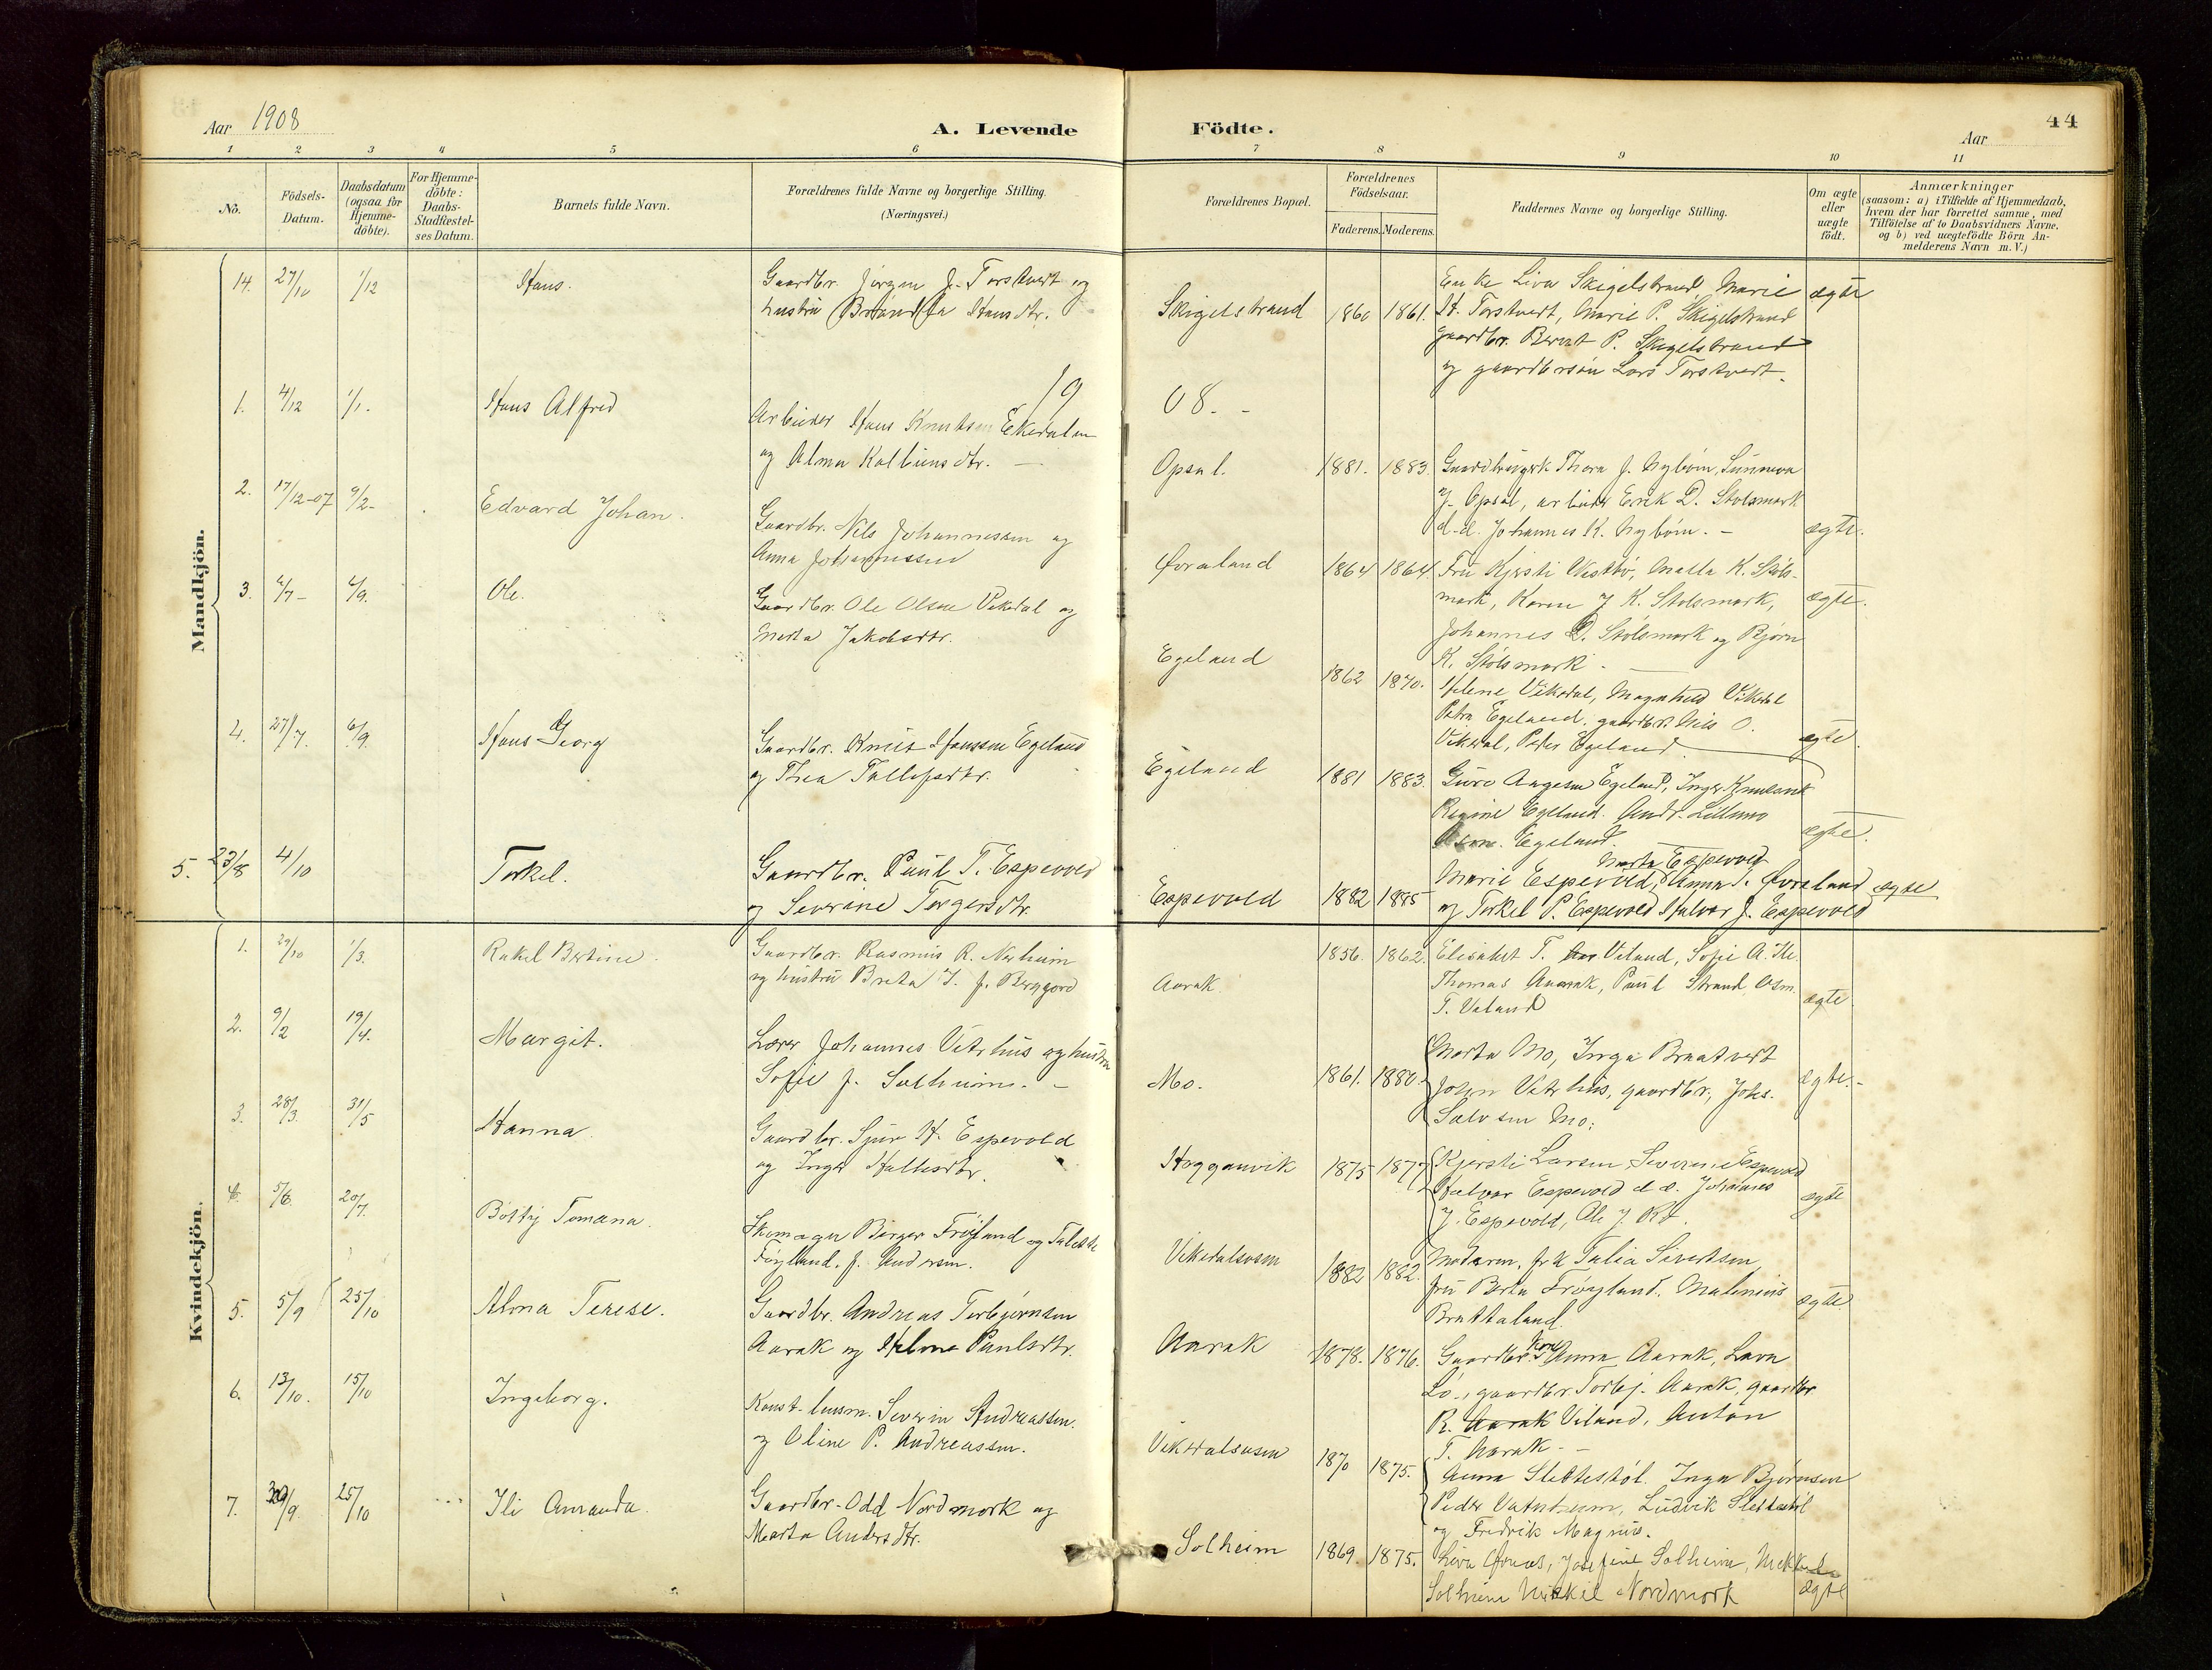 Aar 1908
A. Levende Födte.
Aar
44
1 2 3 4 5 6 7 8 9 10 11
No.
Födsels-Datum.
Daabsdatum (ogsaa for Hjemme-döbte).
For Hjemme-döbte: Daabs-Stadfæstel-ses Datum.
Barnets fulde Navn.
Forældrenes fulde Navne og borgerlige Stilling.
(Næringsvei.)
Forældrenes Bopæl.
Forældrenes Födselsaar.
Faderens. Moderens.
Faddernes Navne og borgerlige Stilling.
Om ægte eller uægte födt.
Anmærkninger
(saasom: a) i Tilfælde af Hjemmedaab,
hvem der har forrettet samme, med
Tilföielse af to Daabsvidners Navne,
og b) ved uægtefödte Börn An-
melderens Navn m. V.)
Mandkjön.
14. 27/10 1/12 Hans.
Gaardbr. Jörgen J. Torstvert og
hustru Hansdtr.
Skigelstrand 1860 1861.
Enke Liva Skigelstrand Marie
H. Torstvert, Marie P. Skigelstrand
gaardbr. Bernt P. Skigelstrand
og gaardbrsön Lars Torstvert.
ægte
19 08. -
1. 4/12 1/1. Hans Alfred
Arbeider Hans Knutsen Ekedalen
og Alma Kolbeinsdtr. -
Opsal. 1881. 1883.
Thora J. Nybøen,
J. Opsal, arbeider Erik D. Stølsmark
d.d. Johannes K. Nybøen. -
ægte.
2. 17/12-07 9/2- Edvard Johan.
Gaardbr. Nils Johannessen og
Anna Johannessen
Øvraland 1864 1864
Fru Kjersti Vestbø, Malla K. Støls-
mark, Karen J K. Stølsmark,
Johannes D. Stølsmark og Bjørn
K. Stølsmark -
ægte.
3. 4/9. Ole.
Gaardbr. Ole Olsen Vikedal og
Marta Jakobsdtr.
Egeland 1862 1870.
Helene Vikedal, Vikedal
Petra Egeland. gaardbr. Nils O.
Vikedal, Peder Egeland
ægte.
4. 27/7. 6/9. Hans Georg
Gaardbr. Knut Hanssen Egeland
og Thea Tollefsdtr.
Egeland 1881 1883.
Guro Aagesen Egeland, Inger
Regine Egeland. Andr.
Egeland.
ægte.
5. 23/8 4/10 Torkel.
Gaardbr. Paul T. Espevold
og Severine Torgersdtr.
Espevold 1882 1885
Marta Espevold
Marie Espevold, Anna T. Øvraland
og Torkel P. Espevold Halvor J. Espevold
ægte
Kvindekjön.
1. 29/10 1/3. Rakel Bertine.
Gaardbr. Rasmus R. Nerheim
og hustru Breta T. f. Berggord
Aarak 1856. 1862.
Elisabet T. Veland, Sofie A.
Thomas Aarak, Paul Strand, Osm.
T. Veland
ægte.
2. 9/2 19/4. Margit.
Lærer Johannes Vatrhus og hustru
Sofie f. Solheim. -
Mo. 1861. 1880.
Marta Mo, Inga Braatvert
John Vatrhus, gaardbr, Johs.
Salvesen Mo.
ægte.-
3. 28/3. 31/5 Hanna.
Gaardbr. Sjur H. Espevold
og Inger Hallesdtr.
Hogganvik 1875 1877
Kjersti Larsen Severine Espevold
Halvor Espevold d.d. Johannes
J. Espevold, Ole J.
ægte
4. 5/6. 20/7. Botty Tomana.
Skomager Børger Frøyland og
Frøyland, f. Andersen.
Vikedalsosen 1882 1882.
Moderen, frk Talia Sivertsen,
fru Berta Frøyland. Malenius
Brattaland.
ægte.
5. 5/9 25/10 Alma Terese.
Gaardbr. Andreas Torbjørnsen
Aarak og Helene Paulsdtr.
Aarak 1878. 1876.
Gaardbr. kone Anna Aarak, Lava
Lo., gaardbr. Torbj. Aarak, gaardbr
R. Aarak Veland, Anton
T. Aarak. -
6. 13/10. 15/10 Ingeborg.
Konst. lensm. Severin Andreassen.
og Oline P. Andreassen.
Vikedalsosen 1870 1875.
Anna Slettestøl. Inga Bjørnsen
Peder Vatnheim, Ludvik Slettestøl
og Fredrik Magnus.
7. 25/10 Ili Amanda.
Gaardbr. Odd Nordmork og
Marta Andersdtr.
Solheim 1869. 1875.
Liva, Josefine Solheim, Mekkel
Solheim Mikkel Nordmork
ægte